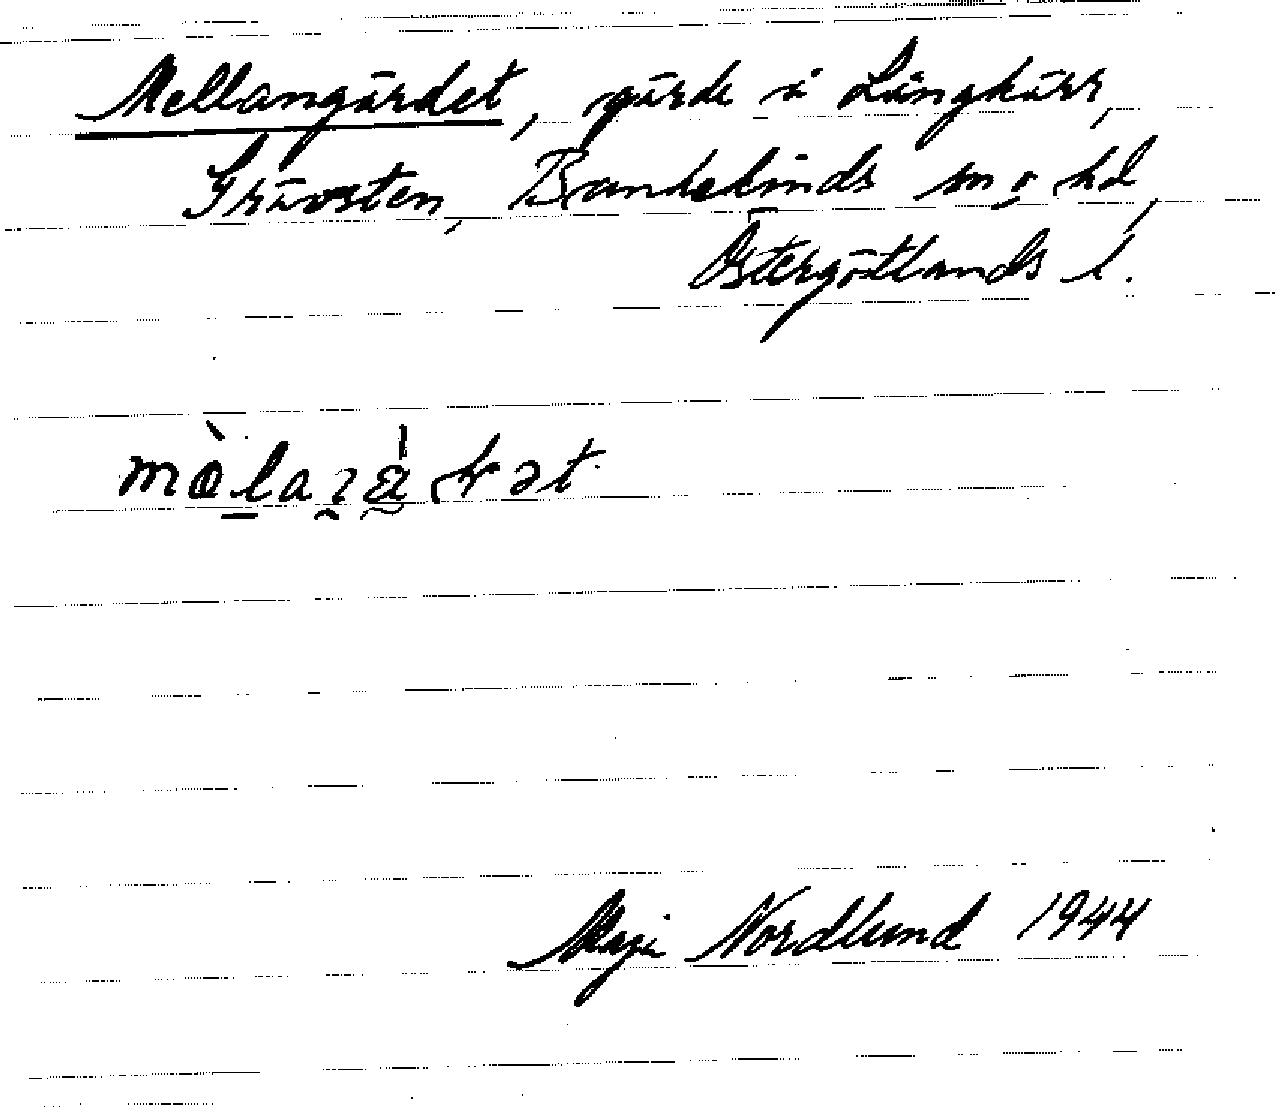 Mellangärdet, gärde i Långkärr,
Gråvsten, Bankekinds sn o hd,
Östergötlands l.
Maji Nordlund 1944